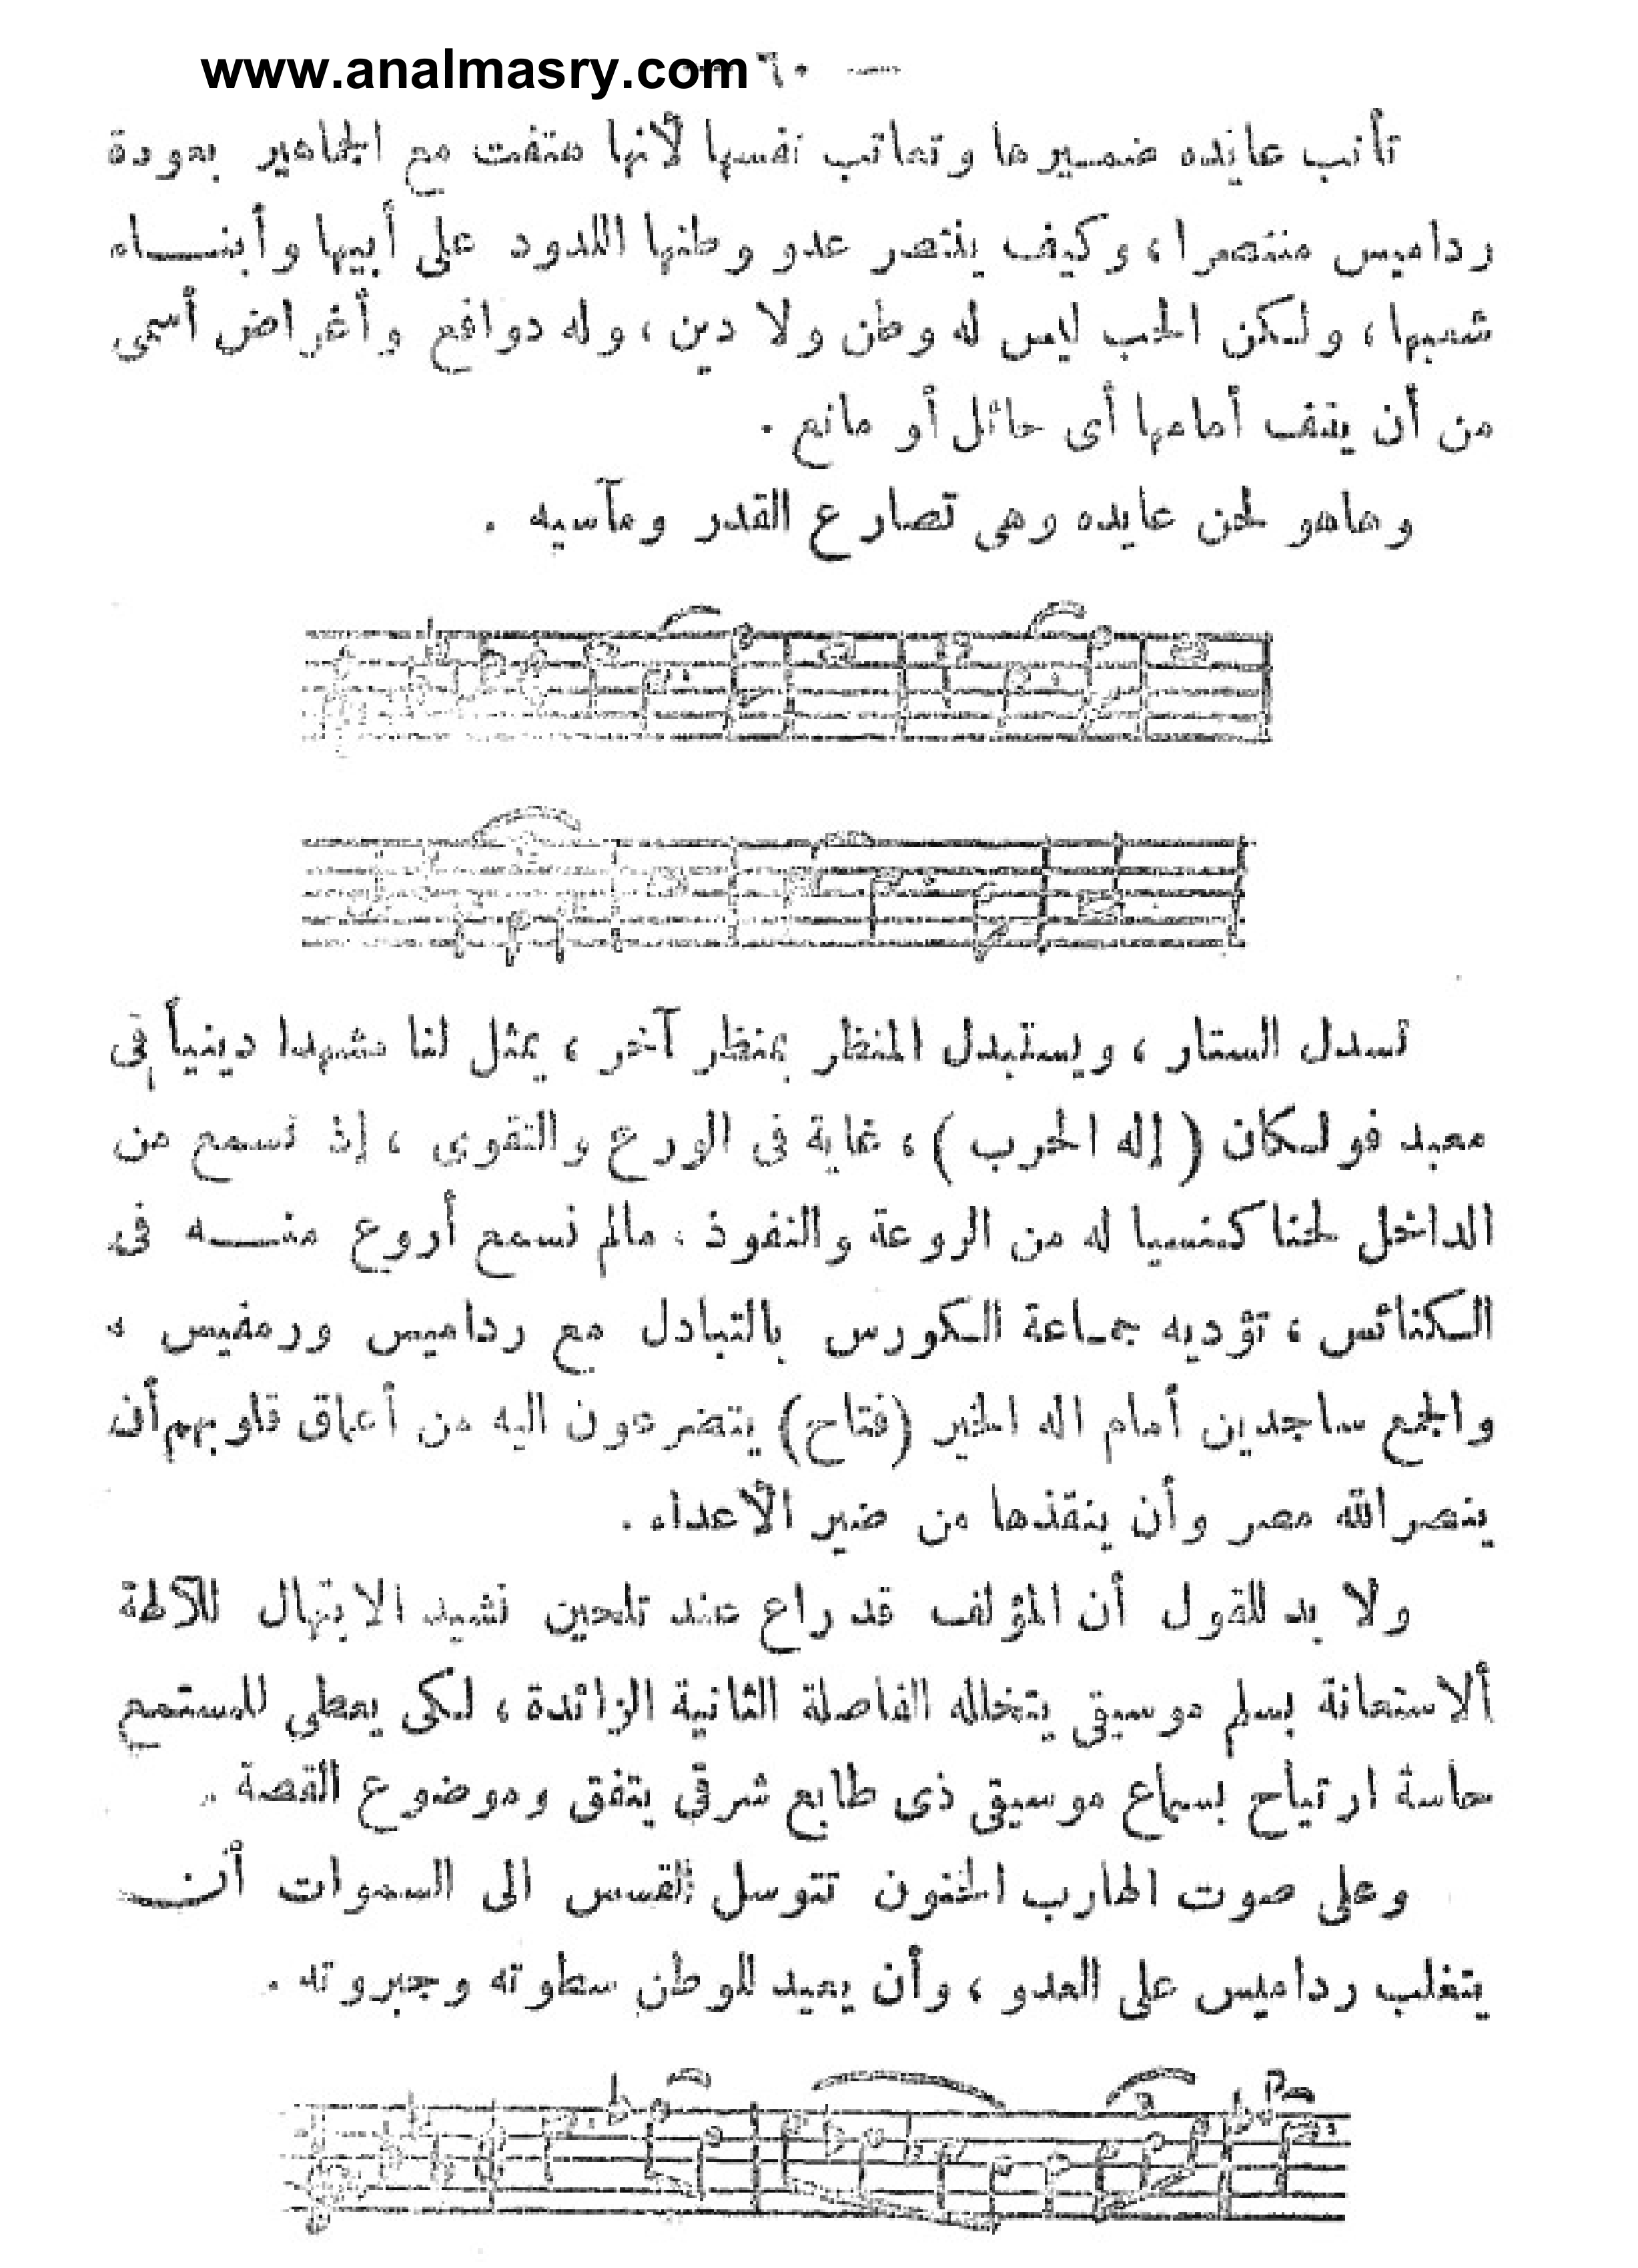 www.analmasry.com
— ٦٠ —
تأنب عايده ضميرها وتعاتب نفسها لأنها هتفت مع الجماهير بعودة
رداميس منتصرا، وكيف ينتصر عدو وطنها اللدود على أبيها وأبنــاء
شعبها، ولكن الحب ليس له وطن ولا دين، وله دوافع وأغراض أسمى
من أن يقف أمامها أى حائل أو مانع .
وهاهو لحن عايده وهى تصارع القدر ومآسيه .
تسدل الستار، ويستبدل المنظر بمنظر آخر، يمثل لنا مشهدا دينياً فى
معبد فولكان ( إله الحرب )، غاية فى الورع والتقوى، إذ نسمع من
الداخل لحنا كنسيا له من الروعة والنفوذ، مالم نسمع أروع منــه فى
الكنائس، تؤديه جماعة الكورس بالتبادل مع رداميس ورمفيس،
والجمع ساجدين أمام اله الخير (فتاح) يتضرعون اليه من أعماق قلوبهم أن
ينصر الله مصر وأن ينقذها من ضير الأعداء .
ولا بد للقول أن المؤلف قد راع عند تلحين نشيد الابتهال للآلهة
ألاستعانة بسلم موسيقى يتخلله الفاصلة الثانية الزائدة، لكى يعطى للمستمع
حاسة ارتياح بسماع موسيقى ذى طابع شرقى يتفق وموضوع القصة .
وعلى صوت الهارب الحنون تتوسل القسس الى السموات أن
يتغلب رداميس على العدو، وأن يعيد للوطن سطوته وجبروته .